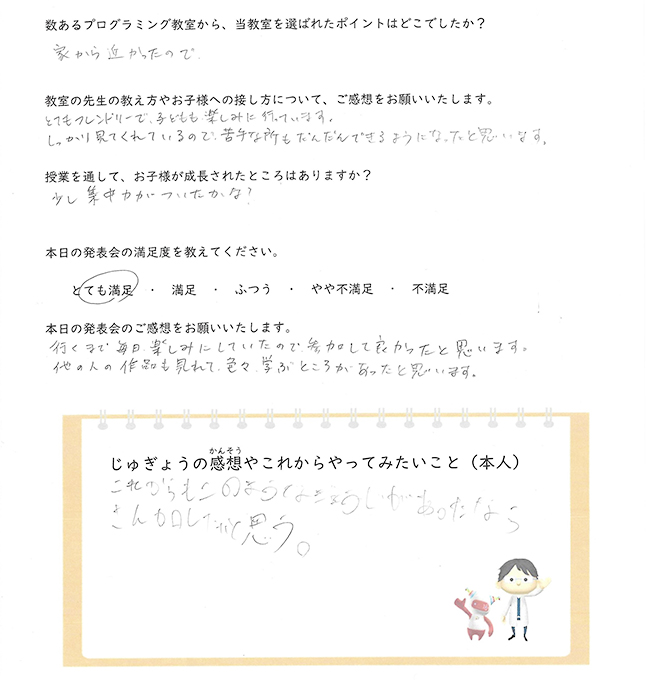 数あるプログラミング教室から、当教室を選ばれたポイントはどこでしたか？
家から近かったので.
教室の先生の教え方やお子様への接し方について、ご感想をお願いいたします。
とてもフレンドリーで、子どもも楽しみに行っています。
しっかり見てくれているので、苦手な所もだんだんできるようになったと思います。
授業を通して、お子様が成長されたところはありますか？
少し集中力がついたかな？
本日の発表会の満足度を教えてください。
とても満足 ・ 満足 ・ ふつう ・ やや不満足 ・ 不満足
本日の発表会のご感想をお願いいたします。
行くまで毎日楽しみにしていたので参加して良かったと思います。
他の人の作品も見れて、色々学ぶところがあったと思います。
かんそう
じゅぎょうの感想やこれからやってみたいこと（本人）
これからもこのような があったなら
さんかしたいと思う。